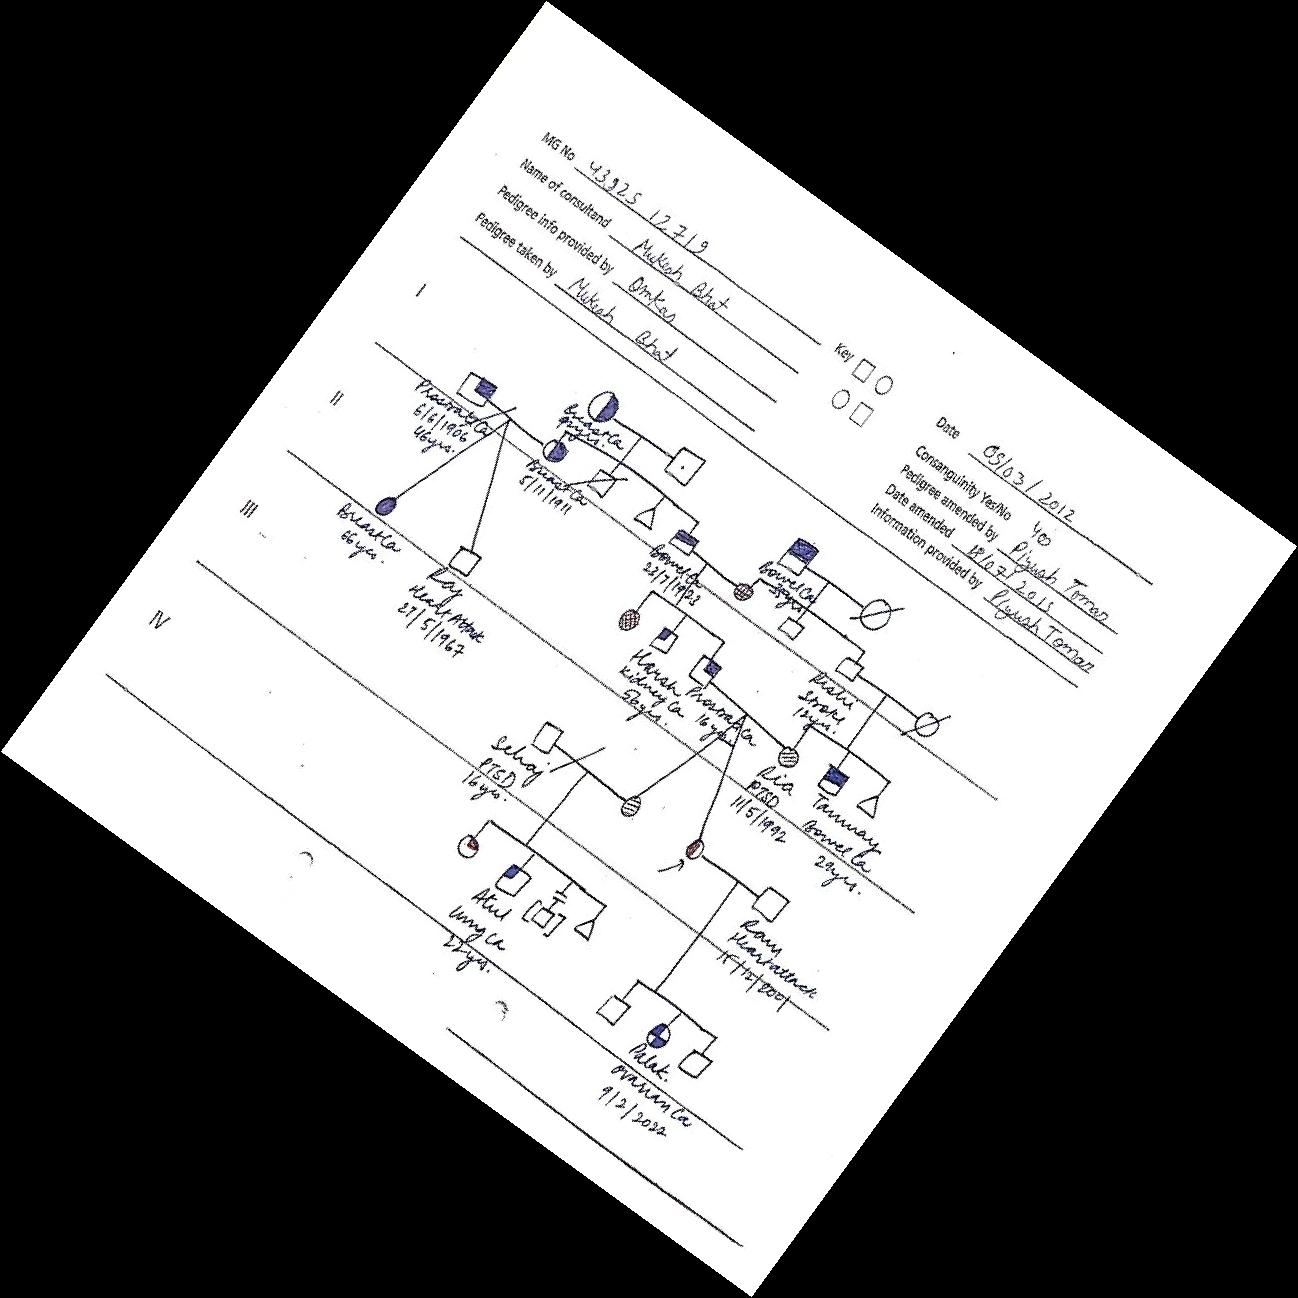 MG No 43925 12719
Name of consultand Mukesh Bhat
Pedigree info provided by Omkar
Pedigree taken by Mukesh Bhat
Key
Date 05/03/2012
Consanguinity Yes/No yes
Pedigree amended by Piyush Tomar
Date amended 18/07/2015
Information provided by Piyush Tomar
I
Prostrate Ca
6/6/1906
46yrs.
Breast Ca
yrs.
II
Breast Ca
5/11/1911
Bowel Ca
23/7/1923
Bowel Ca
38yrs
Breast Ca
66 yrs.
Roy
Heart Attack
27/5/1967
Harsh
Kidney Ca
56yrs.
Prostrate Ca
16 yrs.
Rishi
Stroke
12yrs.
III
Sehaj
PTSD
16 yrs.
Ria
PTSD
11/5/1992
Tanmay
Bowel Ca
29yrs.
IV
Atul
Lung Ca
22yrs.
Ram
Heart attack
15/12/2001
Palak.
Ovarian Ca
9/2/2022